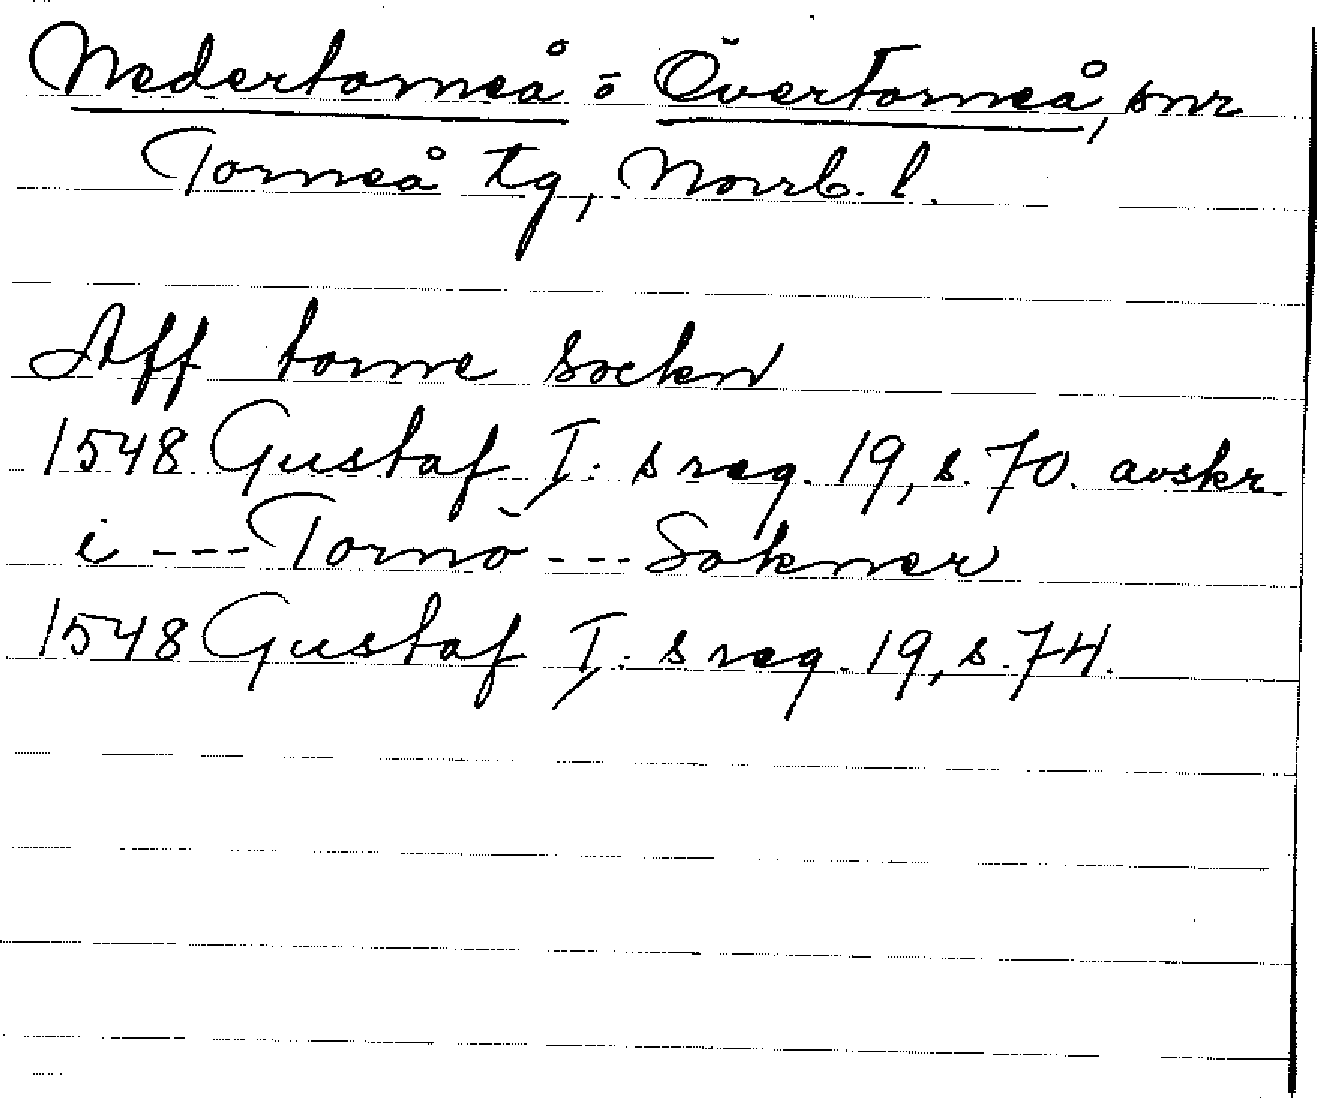 Nedertorneå o Övertorneå, snr
Torneå tg, Norrb. l.
Aff torne socken
1548 Gustaf I:s reg. 19, s. 70. avskr.
i --- Tornö --- Sokner
1548 Gustaf I:s reg. 19, s. 74.